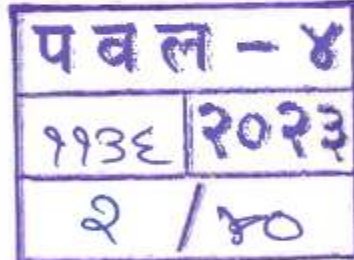 प व ल - ४
११३६ २०२३
२ / ४०